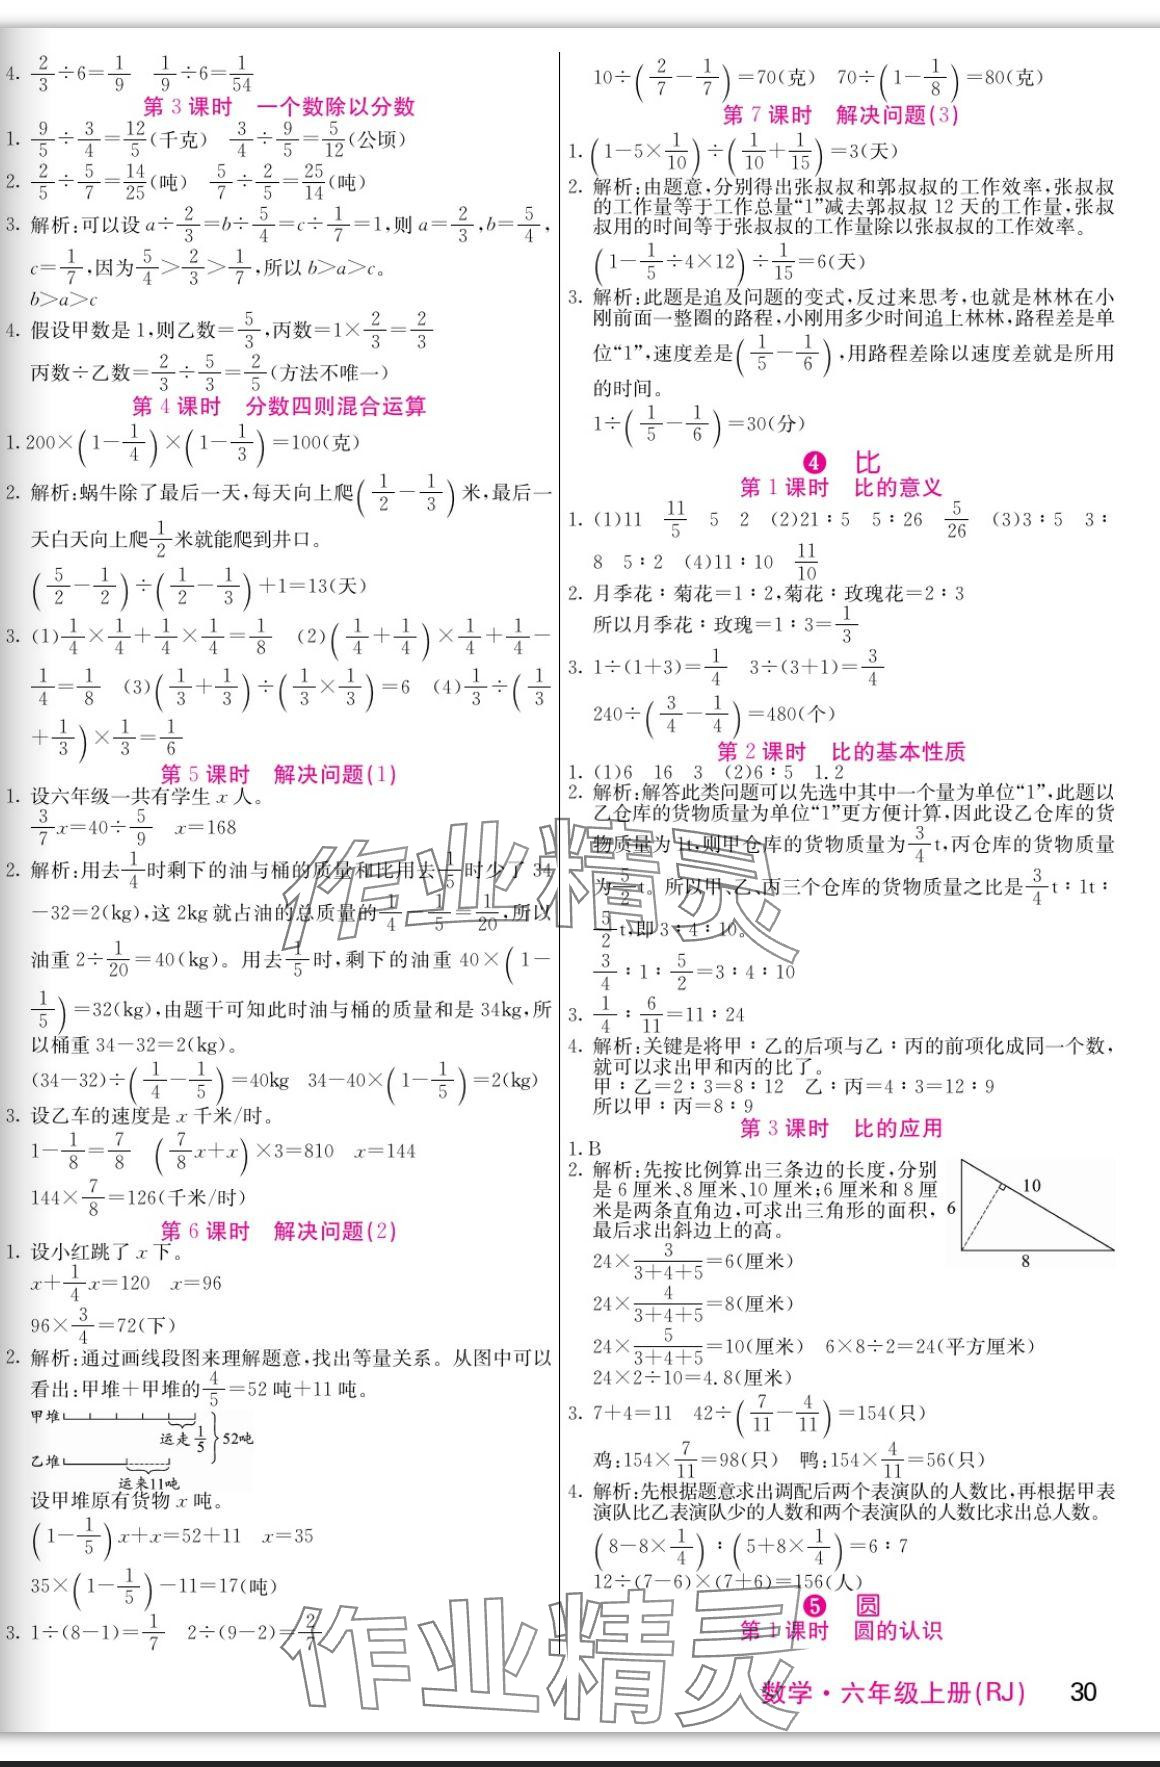 4. 2/3÷6=1/9　1/9÷6=1/54
第 3 课时　一个数除以分数
1. 9/5÷3/4=12/5(千克)　3/4÷9/5=5/12(公顷)
2. 2/5÷5/7=14/25(吨)　5/7÷2/5=25/14(吨)
3. 解析:可以设 a÷2/3=b÷5/4=c÷1/7=1,则 a=2/3,b=5/4,
c=1/7,因为5/4>2/3>1/7,所以 b>a>c。
b>a>c
4. 假设甲数是 1,则乙数=5/3,丙数=1×2/3=2/3
丙数÷乙数=2/3÷5/3=2/5(方法不唯一)
第 4 课时　分数四则混合运算
1. 200×(1-1/4)×(1-1/3)=100(克)
2. 解析:蜗牛除了最后一天,每天向上爬(1/2-1/3)米,最后一
天白天向上爬1/2米就能爬到井口。
(5/2-1/2)÷(1/2-1/3)+1=13(天)
3. (1)1/4×1/4+1/4×1/4=1/8　(2)(1/4+1/4)×1/4+1/4-
1/4=1/8　(3)(1/3+1/3)÷(1/3×1/3)=6　(4)1/3÷(1/3
+1/3)×1/3=1/6
第 5 课时　解决问题(1)
1. 设六年级一共有学生 x 人。
3/7x=40÷5/9　x=168
2. 解析:用去1/4时剩下的油与桶的质量和比用去1/5时少了 34
-32=2(kg),这 2kg 就占油的总质量的1/4-1/5=1/20,所以
油重 2÷1/20=40(kg)。用去1/5时,剩下的油重 40×(1-
1/5)=32(kg),由题干可知此时油与桶的质量和是 34kg,所
以桶重 34-32=2(kg)。
(34-32)÷(1/4-1/5)=40kg　34-40×(1-1/5)=2(kg)
3. 设乙车的速度是 x 千米/时。
1-1/8=7/8　(7/8x+x)×3=810　x=144
144×7/8=126(千米/时)
第 6 课时　解决问题(2)
1. 设小红跳了 x 下。
x+1/4x=120　x=96
96×3/4=72(下)
2. 解析:通过画线段图来理解题意,找出等量关系。从图中可以
看出:甲堆+甲堆的4/5=52 吨+11 吨。
甲堆
运走1/5
52吨
乙堆
运来11吨
设甲堆原有货物 x 吨。
(1-1/5)x+x=52+11　x=35
35×(1-1/5)-11=17(吨)
3. 1÷(8-1)=1/7　2÷(9-2)=2/7
10÷(2/7-1/7)=70(克)　70÷(1-1/8)=80(克)
第 7 课时　解决问题(3)
1. (1-5×1/10)÷(1/10+1/15)=3(天)
2. 解析:由题意,分别得出张叔叔和郭叔叔的工作效率,张叔叔
的工作量等于工作总量“1”减去郭叔叔 12 天的工作量,张叔
叔用的时间等于张叔叔的工作量除以张叔叔的工作效率。
(1-1/5÷4×12)÷1/15=6(天)
3. 解析:此题是追及问题的变式,反过来思考,也就是林林在小
刚前面一整圈的路程,小刚用多少时间追上林林,路程差是单
位“1”,速度差是(1/5-1/6),用路程差除以速度差就是所用
的时间。
1÷(1/5-1/6)=30(分)
4　比
第 1 课时　比的意义
1. (1)11　11/5　5　2　(2)21∶5　5∶26　5/26　(3)3∶5　3∶
8　5∶2　(4)11∶10　11/10
2. 月季花∶菊花=1∶2,菊花∶玫瑰花=2∶3
所以月季花∶玫瑰=1∶3=1/3
3. 1÷(1+3)=1/4　3÷(3+1)=3/4
240÷(3/4-1/4)=480(个)
第 2 课时　比的基本性质
1. (1)6　16　3　(2)6∶5　1.2
2. 解析:解答此类问题可以先选中其中一个量为单位“1”,此题以
乙仓库的货物质量为单位“1”更方便计算,因此设乙仓库的货
物质量为 1t,则甲仓库的货物质量为3/4t,丙仓库的货物质量
为5/2t。所以甲、乙、丙三个仓库的货物质量之比是3/4t∶1t∶
5/2t,即 3∶4∶10。
3/4∶1∶5/2=3∶4∶10
3. 1/4∶6/11=11∶24
4. 解析:关键是将甲∶乙的后项与乙∶丙的前项化成同一个数,
就可以求出甲和丙的比了。
甲∶乙=2∶3=8∶12　乙∶丙=4∶3=12∶9
所以甲∶丙=8∶9
第 3 课时　比的应用
1. B
2. 解析:先按比例算出三条边的长度,分别
是 6 厘米、8 厘米、10 厘米;6 厘米和 8 厘
米是两条直角边,可求出三角形的面积,
最后求出斜边上的高。
6
10
8
24×3/(3+4+5)=6(厘米)
24×4/(3+4+5)=8(厘米)
24×5/(3+4+5)=10(厘米)　6×8÷2=24(平方厘米)
24×2÷10=4.8(厘米)
3. 7+4=11　42÷(7/11-4/11)=154(只)
鸡:154×7/11=98(只)　鸭:154×4/11=56(只)
4. 解析:先根据题意求出调配后两个表演队的人数比,再根据甲表
演队比乙表演队少的人数和两个表演队的人数比求出总人数。
(8-8×1/4)∶(5+8×1/4)=6∶7
12÷(7-6)×(7+6)=156(人)
5　圆
第 1 课时　圆的认识
数学·六年级上册(RJ)　30
作业精灵
作业精灵